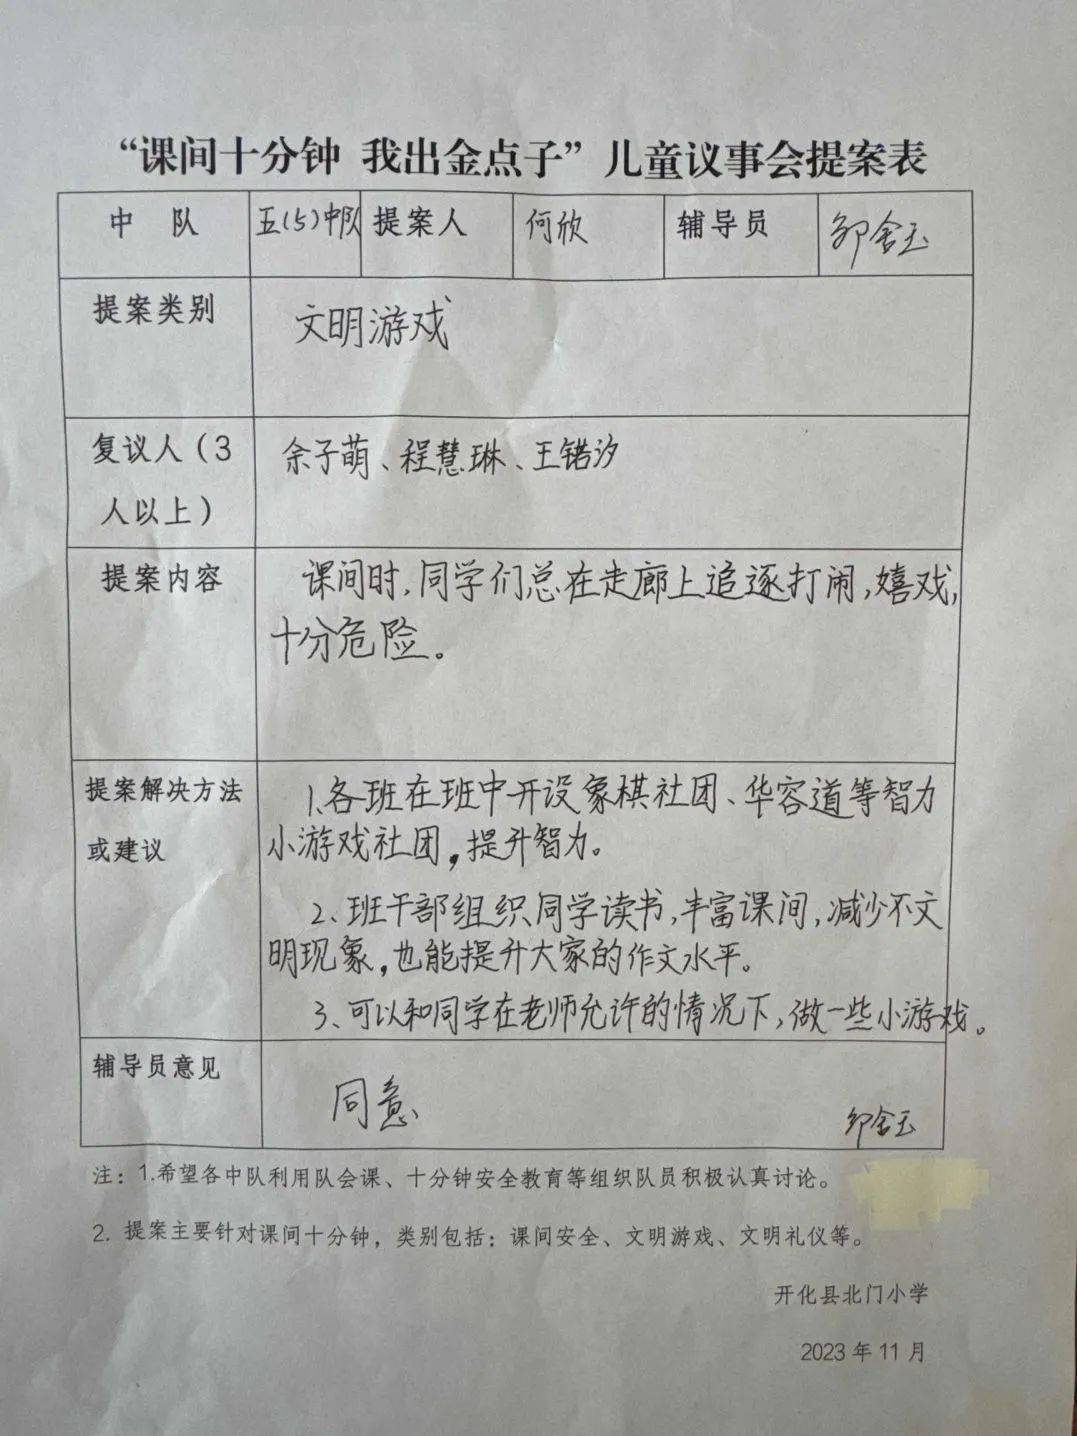 “课间十分钟 我出金点子”儿童议事会提案表
中 队 五(5)中队 提案人 何欣 辅导员 邹舍玉
提案类别 文明游戏
复议人（3 余子萌、程慧琳、王锘汐
人以上）
提案内容 课间时,同学们总在走廊上追逐打闹,嬉戏,
十分危险。
提案解决方法 1.各班在班中开设象棋社团、华容道等智力
或建议 小游戏社团,提升智力。
2、班干部组织同学读书,丰富课间,减少不文
明现象,也能提升大家的作文水平。
3、可以和同学在老师允许的情况下,做一些小游戏。
辅导员意见 同意
邹舍玉
注：1.希望各中队利用队会课、十分钟安全教育等组织队员积极认真讨论。
2. 提案主要针对课间十分钟，类别包括：课间安全、文明游戏、文明礼仪等。
开化县北门小学
2023 年 11 月